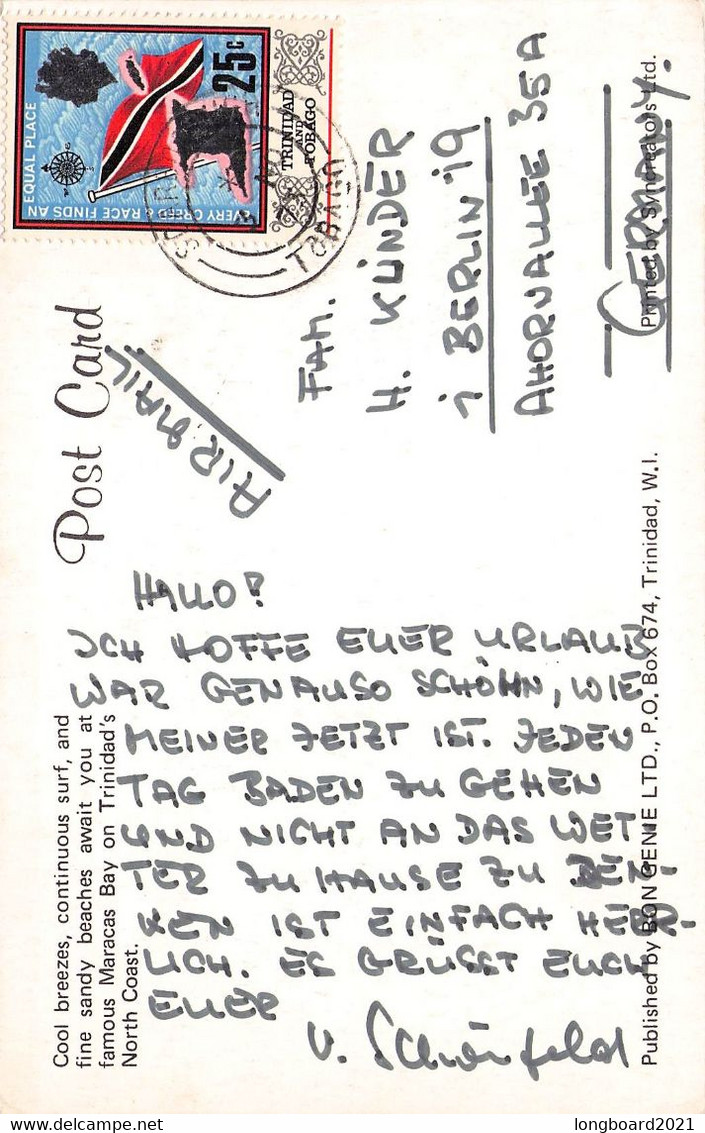 Post Card
AIR MAIL
25c
TRINIDAD
AND
TOBAGO
EVERY CREED & RACE FINDS AN EQUAL PLACE
TOBAGO
FAM.
H. KLINDER
1 BERLIN 19
AHORNALLEE 35A
GERMANY.
Printed by Syncreators Ltd.
HALLO!
ICH HOFFE EUER URLAUB
WAR GENAUSO SCHÖHN, WIE
MEINER JETZT IST. JEDEN
TAG BADEN ZU GEHEN
UND NICHT AN DAS WET-
TER ZU HAUSE ZU DEN-
KEN IST EINFACH HERR-
LICH. ES GRÜSST EUCH
EUER
v. Schönfeld
Cool breezes, continuous surf, and
fine sandy beaches await you at
famous Maracas Bay on Trinidad's
North Coast.
Published by BON GENIE LTD., P.O. Box 674, Trinidad, W.I.
delcampe.net
longboard2021